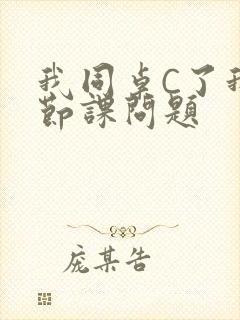 我同桌C了我
节課問題
庞某告